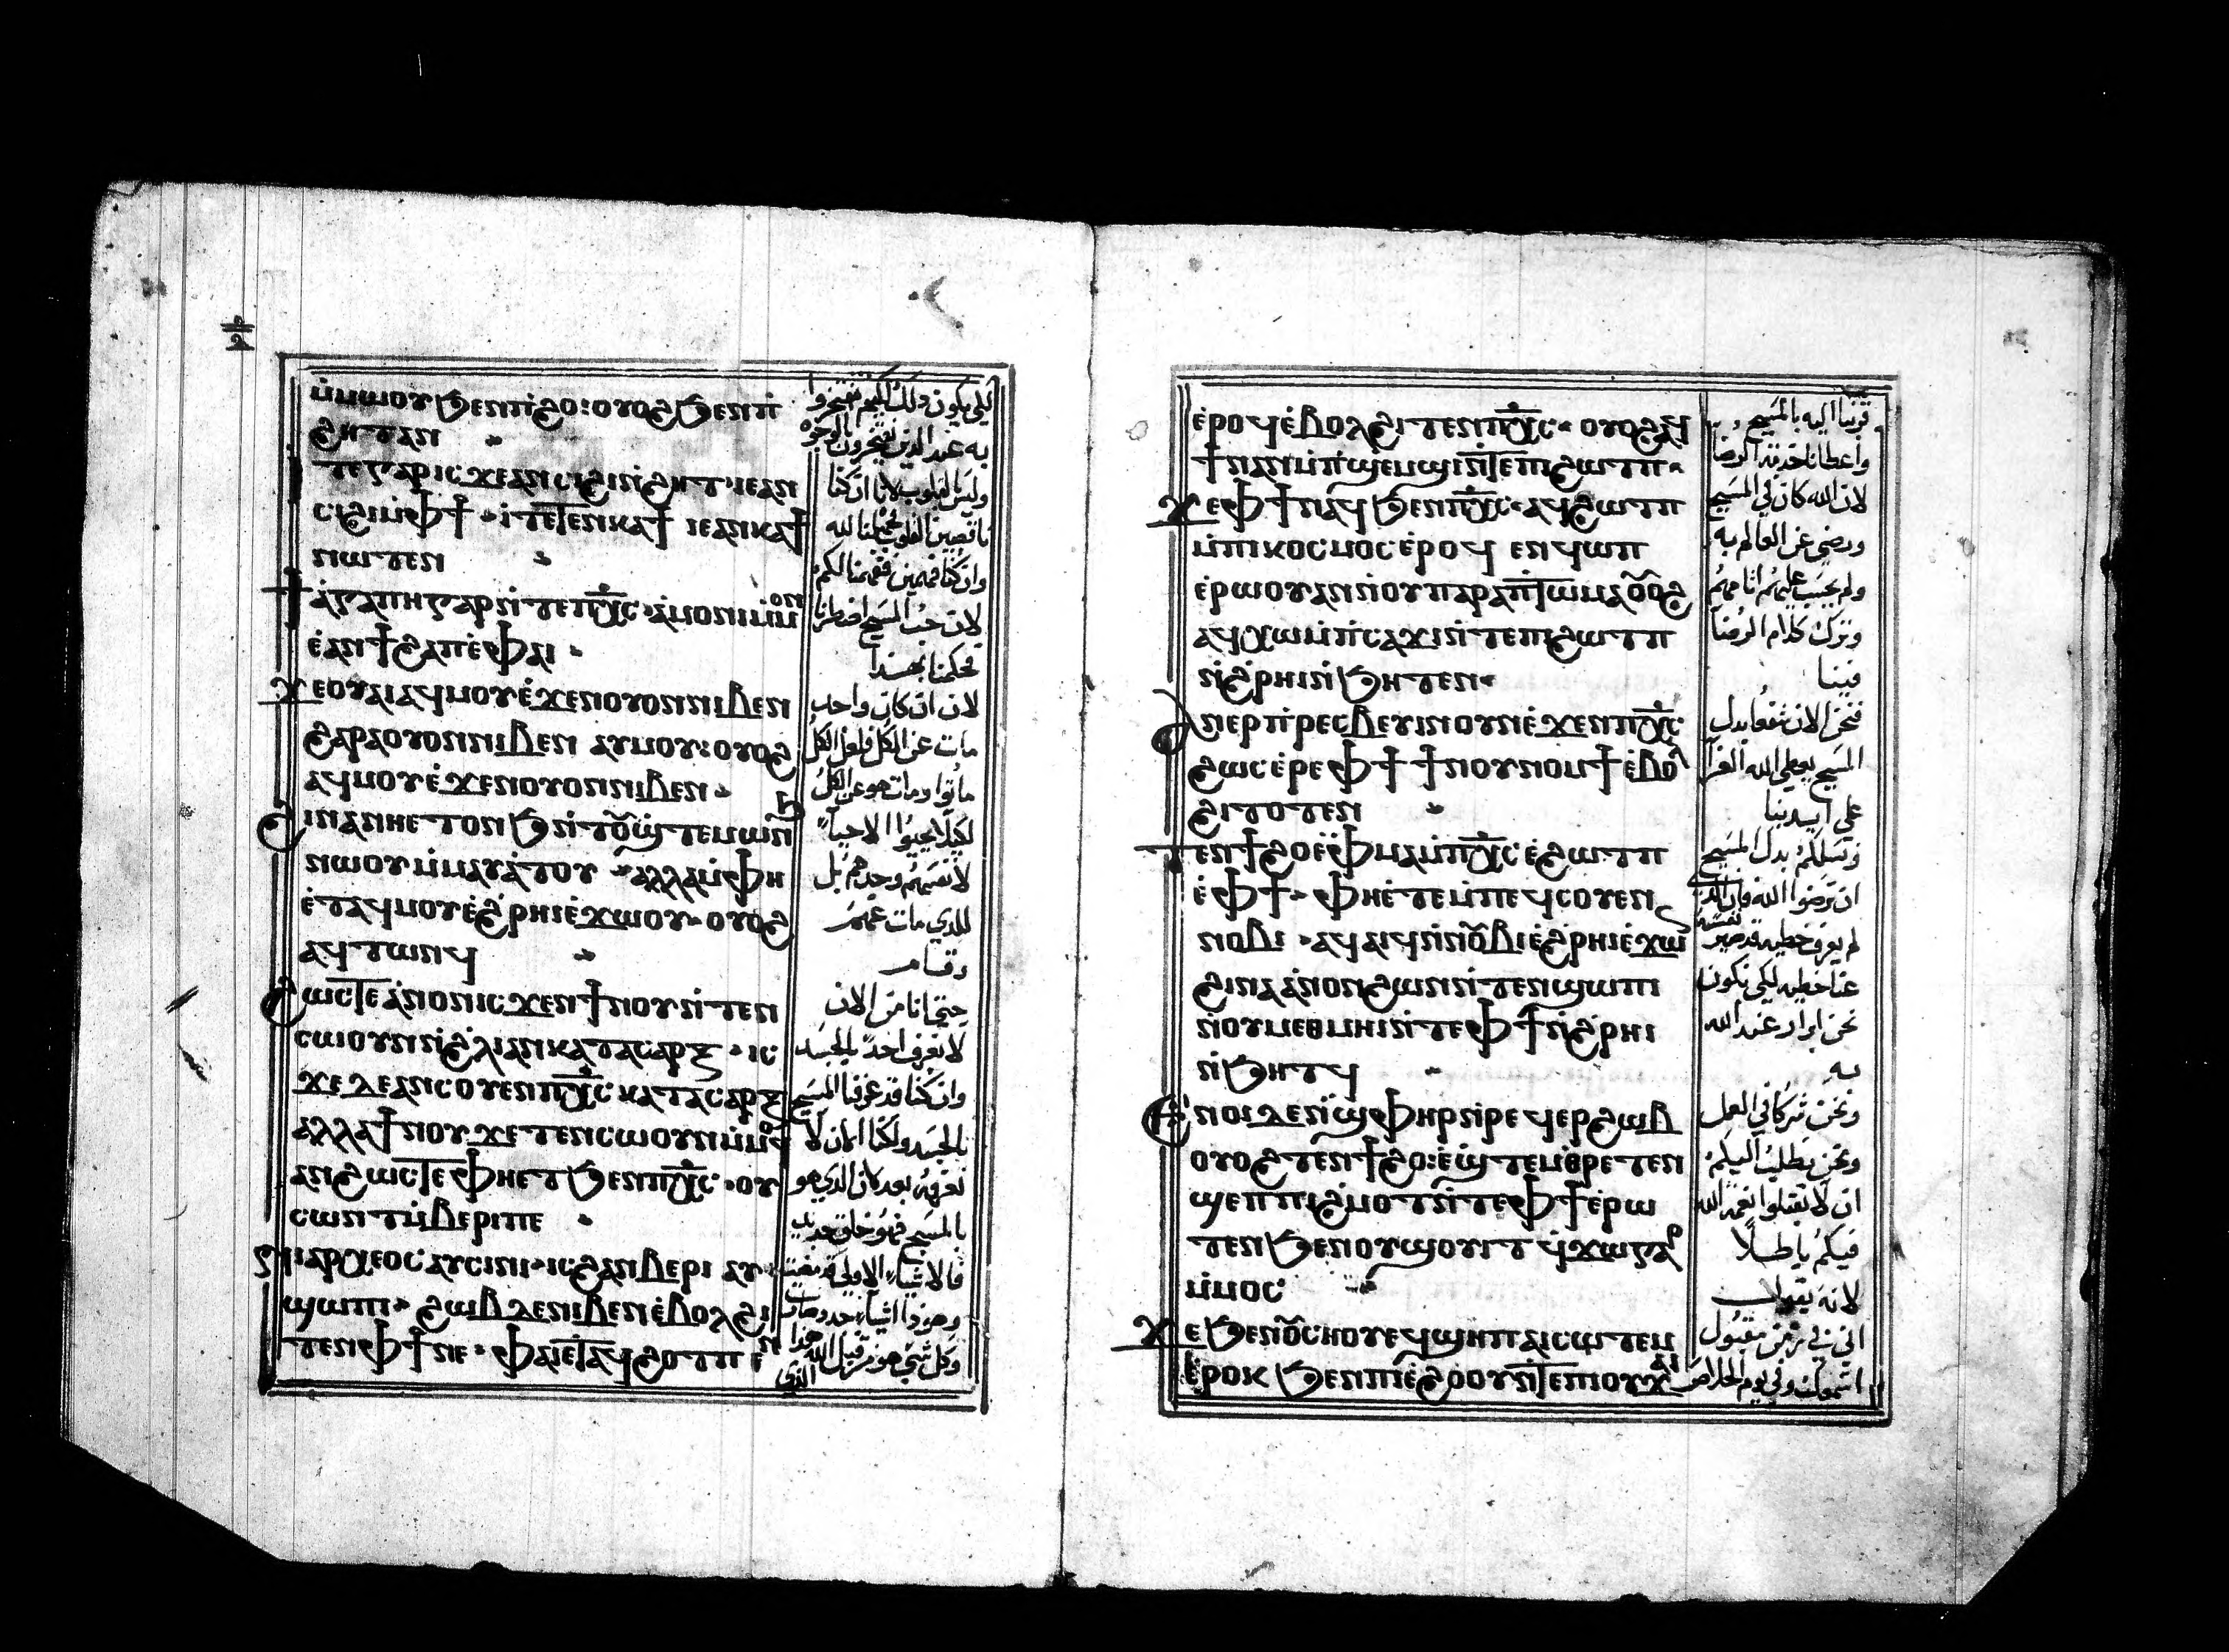 ⲙ̀ⲙⲱⲟⲩ ϧⲉⲛⲡ̀ϩⲟ: ⲟⲩⲟϩ ϧⲉⲛⲡ̀
ϩⲏⲧ ⲁⲛ
ⲓⲧⲉ ⲅⲁⲣ ⲓⲥϫⲉ ⲁⲛⲥⲓϩⲓ ⲛ̀ϩⲏⲧ· ⲓⲉ ⲁⲛ
ⲥⲓϩⲓ ⲙ̀ⲫϯ· ⲓ̀ⲧⲉ ⲧⲉⲛⲕⲁϯ ⲓⲉ ⲁⲛⲕⲁϯ
ⲛⲱⲧⲉⲛ
ϯⲁ̀ⲅⲁⲡⲏ ⲅⲁⲣ ⲛ̀ⲧⲉ ⲡⲭ̅ⲥ̅· ⲁ̀ⲙⲟⲛⲓ ⲙ̀ⲙⲟⲛ
ⲉ̀ⲁⲛϯϩⲁⲡ ⲉ̀ⲫⲁⲓ·
ϫⲉ ⲟⲩⲁⲓ ⲁϥⲙⲟⲩ ⲉ̀ϫⲉⲛ ⲟⲩⲟⲛ ⲛⲓⲃⲉⲛ
ϩⲁⲣⲁ ⲟⲩⲟⲛ ⲛⲓⲃⲉⲛ ⲁⲩⲙⲟⲩ: ⲟⲩⲟϩ
ⲁϥⲙⲟⲩ ⲉ̀ϫⲉⲛ ⲟⲩⲟⲛ ⲛⲓⲃⲉⲛ·
ϩⲓⲛⲁ ⲛⲏⲉⲧⲟⲛϧ ⲛ̀ⲧⲟⲩϣ̀ⲧⲉⲙⲱⲛϧ
ⲛⲱⲟⲩ ⲙ̀ⲙⲁⲩⲁ̀ⲧⲟⲩ· ⲁⲗⲗⲁ ⲙ̀ⲫⲏ
ⲉ̀ⲧⲁϥⲙⲟⲩ ⲉ̀ϩ̀ⲣⲏⲓ ⲉ̀ϫⲱⲟⲩ· ⲟⲩⲟϩ
ⲁϥⲧⲱⲛϥ
ϩⲱⲥⲧⲉ ⲁ̀ⲛⲟⲛ ⲓⲥϫⲉⲛ ϯⲛⲟⲩ ⲛ̀ⲧⲉⲛ
ⲥⲱⲟⲩⲛ ⲛ̀ϩ̀ⲗⲓ ⲁⲛ ⲕⲁⲧⲁ ⲥⲁⲣⲝ· ⲓⲥ
ϫⲉ ⲇⲉ ⲁⲛⲥⲟⲩⲉⲛ ⲡⲭ̅ⲥ̅ ⲕⲁⲧⲁ ⲥⲁⲣⲝ
ⲁⲗⲗⲁ ϯⲛⲟⲩ ϫⲉ ⲧⲉⲛⲥⲱⲟⲩⲛ ⲙ̀ⲙⲟϥ
ⲁⲛ ϩⲱⲥⲧⲉ ⲫⲏⲉⲧϧⲉⲛ ⲡⲭ̅ⲥ̅· ⲟⲩ
ⲥⲱⲛⲧ ⲙ̀ⲃⲉⲣⲓ ⲡⲉ
ⲛⲓⲁⲣⲭⲉⲟⲥ ⲁⲩⲥⲓⲛⲓ· ⲓⲥ ϩⲁⲛⲃⲉⲣⲓ ⲁⲩ
ϣⲱⲡⲓ· ϩⲱⲃ ⲇⲉ ⲛⲓⲃⲉⲛ ⲉ̀ⲃⲟⲗϩⲓ
ⲧⲉⲛ ⲫϯ ⲛⲉ· ⲫⲁⲓⲉⲧⲁϥϩⲟⲧⲡⲉⲛ
لكي يكون ذلك لكيما تفتخروا
به عند الذين يفتخرون بالوجوه
وليس بالقلوب لاننا ان كنا
ناقصين القلوب نجعلنا لله
وان كنا فهمين ففهمنا لكم
لان حب المسيح اضطرنا
فحكمنا بهذا
لان ان كان واحد
مات عن الكل فلعل الكل
ماتوا ومات هو عن الكل
لكيلا يحيوا الاحيا
لانفسهم وحدهم بل
للذي مات عنهم
وقام
حتي انا من الان
لا نعرف احدا بالجسد
وان كنا قد عرفنا المسيح
بالجسد ولكنا الان لا
نعرفه بعد كان الذي هو
بالمسيح فهو خلق جديد
فالاشياء الاولي قد مضيت
وهوذا اشياء جدد صارت
وكل شي هو من قبل الله هذا الذي
ⲉ̀ⲣⲟϥ ⲉ̀ⲃⲟⲗϩⲓⲧⲉⲛ ⲡⲭ̅ⲥ̅· ⲟⲩⲟϩ ⲁϥ
ϯ ⲛⲁⲛ ⲙ̀ⲡϣⲉⲙϣⲓ ⲛ̀ⲧⲉ ⲡϩⲱⲧⲡ·
ϫⲉ ⲫϯ ⲛⲁϥϧⲉⲛ ⲡⲭ̅ⲥ̅· ⲁϥϩⲱⲧⲡ
ⲙ̀ⲡⲓⲕⲟⲥⲙⲟⲥ ⲉ̀ⲣⲟϥ ⲉⲛϥⲱⲡ
ⲉ̀ⲣⲱⲟⲩ ⲁⲛ ⲛ̀ⲟⲩⲡⲁⲣⲁⲡⲧⲱⲙⲁ ⲟⲩⲟϩ
ⲁϥⲭⲱ ⲙ̀ⲡ̀ⲥⲁϫⲓ ⲛ̀ⲧⲉ ⲡϩⲱⲧⲡ
ⲛ̀ϩ̀ⲣⲏⲓ ⲛ̀ϧⲏⲧⲉⲛ·
ⲁⲛⲉⲣⲡ̀ⲣⲉⲥⲃⲉⲩⲓⲛ ⲟⲩⲛ ⲉ̀ϫⲉⲛ ⲡⲭ̅ⲥ̅
ϩⲱⲥ ⲉ̀ⲣⲉ ⲫϯ ϯⲛⲟⲩⲛⲟⲙϯ ⲉ̀ⲃⲟⲗ
ϩⲓⲧⲟⲧⲉⲛ
ⲧⲉⲛϯϩⲟ ⲉ̀ⲫⲙⲁ ⲙ̀ⲡⲭ̅ⲥ̅ ⲉ̀ϩⲱⲧⲡ
ⲉ̀ⲫϯ· ⲫⲏⲉ̀ⲧⲉ ⲙ̀ⲡⲉϥⲥⲟⲩⲉⲛ
ⲛⲟⲃⲓ· ⲁϥⲁⲓϥ ⲛ̀ⲛⲟⲃⲓ ⲉ̀ϩ̀ⲣⲏⲓ ⲉ̀ϫⲱⲛ
ϩⲓⲛⲁ ⲁ̀ⲛⲟⲛ ϩⲱⲛ ⲛ̀ⲧⲉⲛϣⲱⲡⲓ
ⲛ̀ⲟⲩⲙⲉⲑⲙⲏⲓ ⲛ̀ⲧⲉ ⲫϯ ⲛ̀ϩ̀ⲣⲏⲓ
ⲛ̀ϧⲏⲧϥ
ⲛⲟⲓ ⲇⲉ ⲛ̀ϣⲫⲏⲣ ⲛ̀ⲣⲉϥⲉⲣϩⲱⲃ
ⲟⲩⲟϩ ⲧⲉⲛϯϩⲟ: ⲉ̀ϣ̀ⲧⲉⲙⲑⲣⲉⲧⲉⲛ
ϣⲉⲡ ⲡⲓϩ̀ⲙⲟⲧ ⲛ̀ⲧⲉ ⲫϯ ⲉ̀ⲣⲱ
ⲧⲉⲛ ϧⲉⲛ ⲟⲩϣⲟⲩⲓⲧ ϥ̀ϫⲱ ⲅⲁⲣ
ⲙ̀ⲙⲟⲥ
ϫⲉ ϧⲉⲛ ⲟⲩⲥⲏⲟⲩ ⲉϥϣⲏⲡ ⲁⲓⲥⲱⲧⲉⲙ
ⲉ̀ⲣⲟⲕ ϧⲉⲛ ⲡⲓⲉ̀ϩⲟⲟⲩ ⲛ̀ⲧⲉ ⲡⲓⲟⲩϫⲁⲓ
قربنا اليه بالمسيح
واعطانا خدمة الرضا
لان الله كان في المسيح
ورضي عن العالم به
ولم يحسب عليهم اثامهم
وترك كلام الرضا
فينا
فنحن الان شفعا بدل
المسيح يعطي الله العزا
علي ايدينا
ونسلكم بدل المسيح
ان ترضوا الله فان الذي
لم يعرف خطيه قد صير نفسه
عنا خطيه لكي نكون
نحن ابرار عند الله
به
ونحن شركا في العمل
ونحن نطلب اليكم
ان لا تقبلوا نعمة الله
فيكم باطلا
لانه يقول
اني في زمن مقبول
استمعتك وفي يوم الخلاص